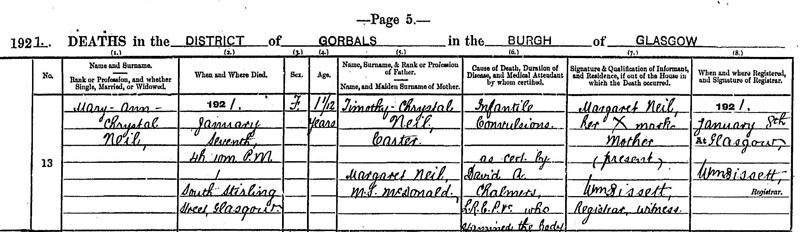 —Page 5.—
1921. DEATHS in the DISTRICT of GORBALS in the BURGH of GLASGOW
(1.) (2.) (3.) (4.) (5.) (6.) (7.) (8.)
No.
Name and Surname.
Rank or Profession, and whether
Single, Married, or Widowed.
When and Where Died.
Sex.
Age.
Name, Surname, & Rank or Profession
of Father.
Name, and Maiden Surname of Mother.
Cause of Death, Duration of
Disease, and Medical Attendant
by whom certified.
Signature & Qualification of Informant,
and Residence, if out of the House in
which the Death occurred.
When and where Registered,
and Signature of Registrar.
13
Mary-Ann-
Chrystal
Neil,
1921.
January
Seventh,
4h 10m. P.M.
1
South Stirling
Street, Glasgow.
F.
1 1/12
years
Timothy-Chrystal
Neil,
Carter.
Margaret Neil,
M.S. McDonald.
Infantile
Convulsions.
as cert. by
David A.
Chalmers,
L.R.C.P. &c. who
examined the body
Margaret Neil,
her X mark
Mother
(present)
Wm Bissett,
Registrar, witness.
1921.
January 8th
At Glasgow
Wm Bissett,
Registrar.